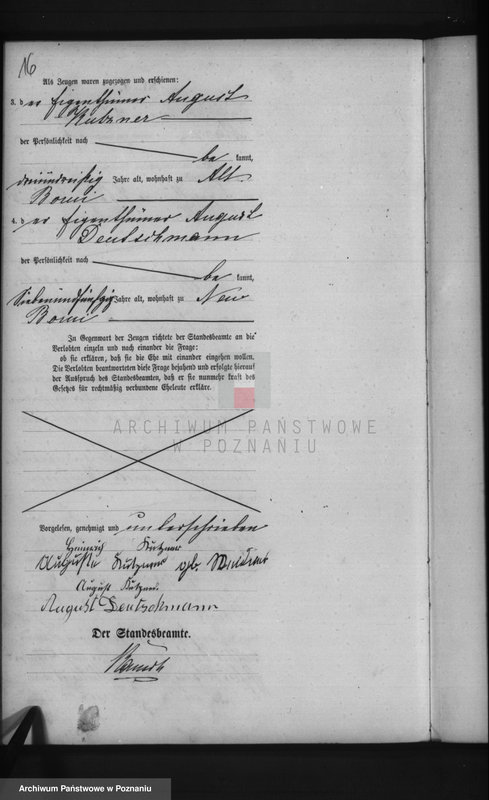 16
Als Zeugen waren zugezogen und erschienen:
3. der Eigenthümer August
Kutzner
der Persönlichkeit nach
be kannt,
dreiunddreißig Jahre alt, wohnhaft zu Alt
Bomi
4. der Eigenthümer August
Deutschmann
der Persönlichkeit nach
be kannt,
Siebenundfünfzig Jahre alt, wohnhaft zu Neu
Bomi
In Gegenwart der Zeugen richtete der Standesbeamte an die
Verlobten einzeln und nach einander die Frage:
ob sie erklären, daß sie die Ehe mit einander eingehen wollen.
Die Verlobten beantworteten diese Frage bejahend und erfolgte hierauf
der Ausspruch des Standesbeamten, daß er sie nunmehr kraft des
Gesetzes für rechtmäßig verbundene Eheleute erkläre.
ARCHIWUM PAŃSTWOWE
W POZNANIU
Vorgelesen, genehmigt und unterschrieben
Heinrich Kutzner
Auguste Kutzner gb.
August Kutzner.
August Deutschmann
Der Standesbeamte.
Archiwum Państwowe w Poznaniu